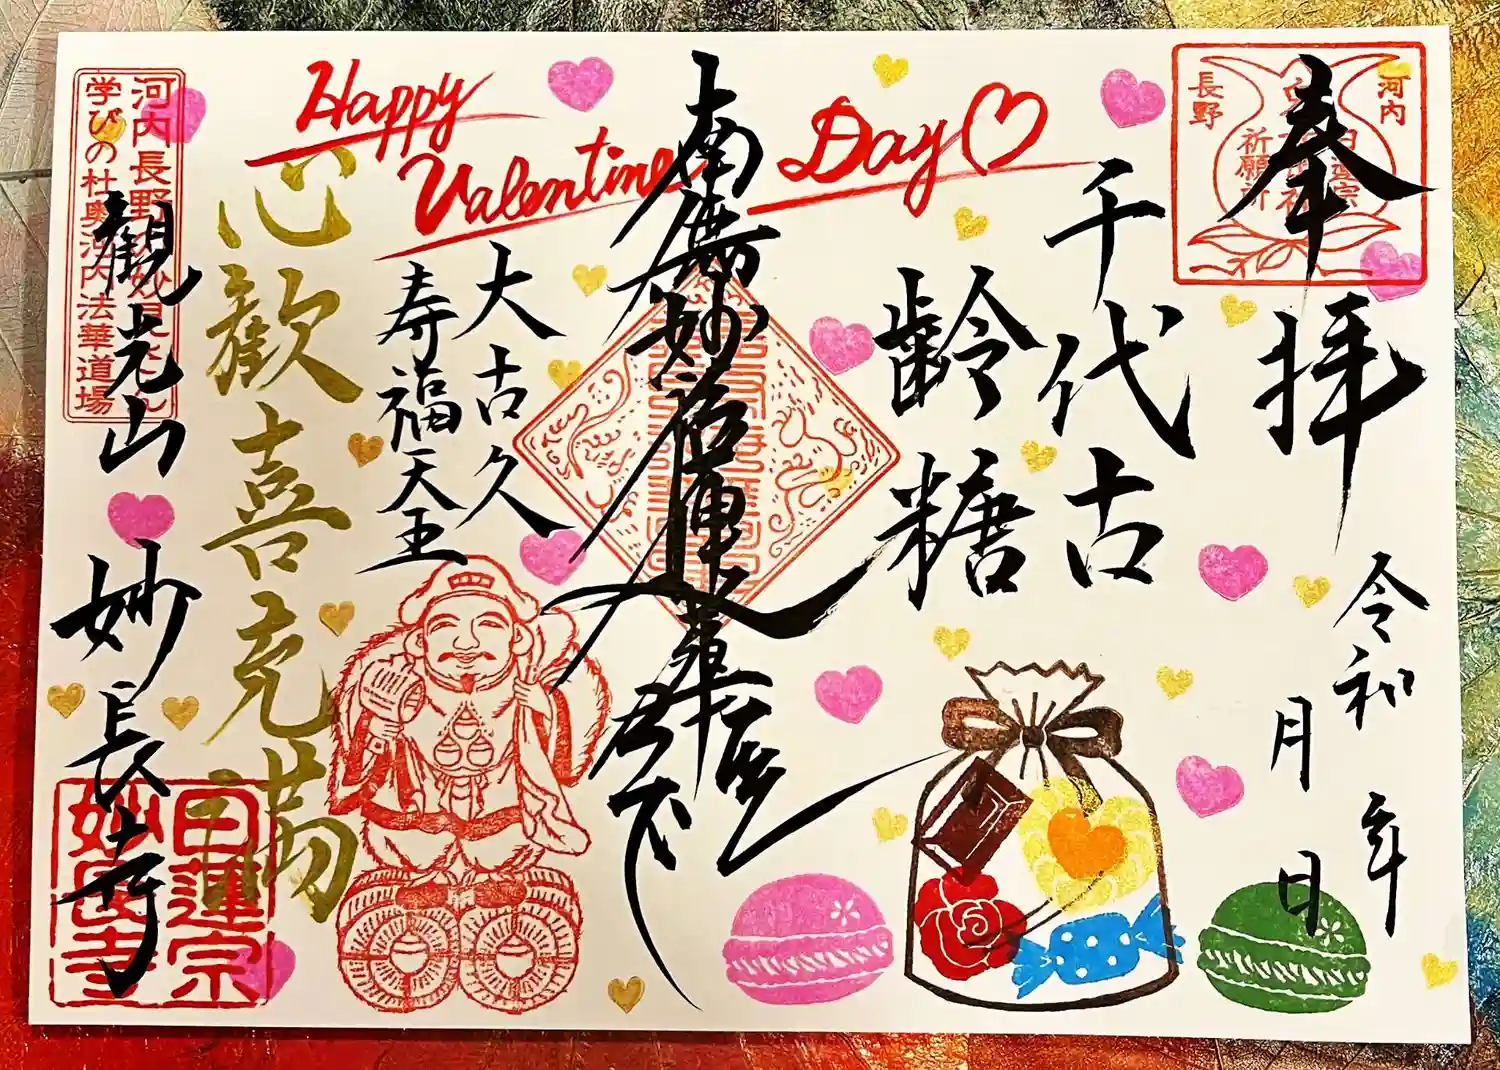 Happy
Valentine
Day
奉拝
河内
長野
日蓮宗
祈願所
令和 年
月 日
千代古
齢糖
南無妙法蓮華経
大古久
寿福天王
心歓喜充満
河内長野
学びの杜奥河内法華道場
観光山
妙長寺
日蓮宗
妙長寺